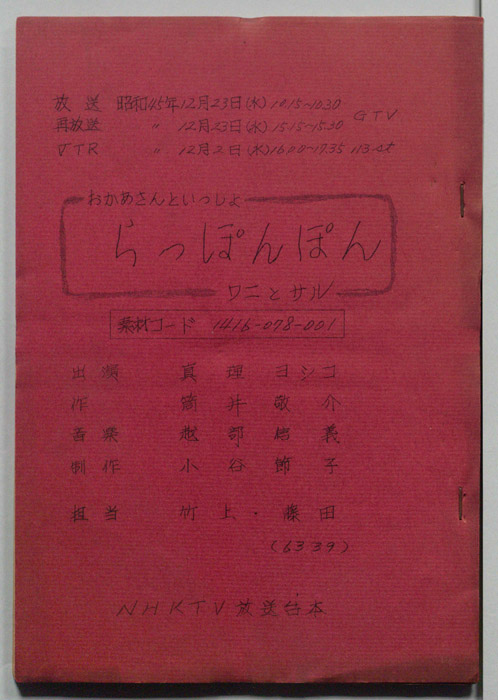 放送 昭和45年12月23日(水)1015~1030
GTV
再放送 〃 12月23日(水)1515~1530
VTR 〃 12月2日(水)1600~1735 113-st
おかあさんといっしょ
らっぽんぽん
ワニとサル
素材コード 1416-078-001
出演 真理ヨシコ
作 筒井敬介
音楽 越部信義
制作 小谷節子
担当 竹上・藤田
(6339)
NHKTV放送台本